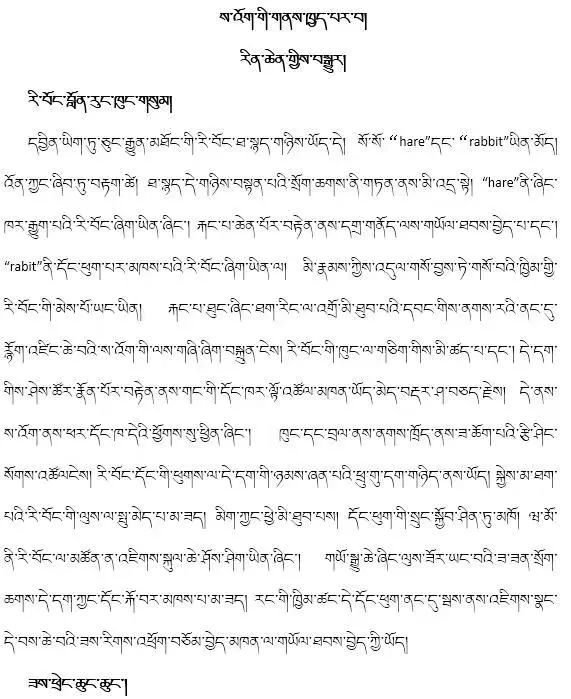 ས་འོག་གི་གནས་ཁྱད་པར་བ།
རིན་ཆེན་གྱིས་བསྒྱུར།
རི་བོང་བློན་རུང་ཁུང་གསུམ།
དབྱིན་ཡིག་ཏུ་ཅུང་རྒྱུན་མཐོང་གི་རི་བོང་ཐ་སྙད་གཉིས་ཡོད་དེ། སོ་སོ་ “hare”དང་ “rabbit”ཡིན་མོད།
འོན་ཀྱང་ཞིབ་ཏུ་བརྟག་ཚེ། ཐ་སྙད་དེ་གཉིས་བསྟན་པའི་སྲོག་ཆགས་ནི་གཏན་ནས་མི་འདྲ་སྟེ། “hare”ནི་ཞིང་
ཁར་རྒྱུག་པའི་རི་བོང་ཞིག་ཡིན་ཞིང་། རྐང་པ་ཆེན་པོར་བརྟེན་ནས་དགྲ་གནོད་ལས་གཡོལ་ཐབས་བྱེད་པ་དང་།
“rabit”ནི་དོང་ཕུག་པར་མཁས་པའི་རི་བོང་ཞིག་ཡིན་ལ། མི་རྣམས་ཀྱིས་འདུལ་གསོ་བྱས་ཏེ་གསོ་བའི་ཁྱིམ་གྱི་
རི་བོང་གི་མེས་པོ་ཡང་ཡིན། རྐང་པ་ཐུང་ཞིང་ཐག་རིང་ལ་འགྲོ་མི་ཐུབ་པའི་དབང་གིས་ནགས་རའི་ནང་དུ་
རྙོག་འཛིང་ཆེ་བའི་ས་འོག་གི་ལས་གཞི་ཞིག་བསྐྲུན་ངེས། རི་བོང་གི་ཁུང་ལ་གཅིག་གིས་མི་ཚད་པ་དང་། དེ་དག་
གིས་ཤེས་ཚོར་རྣོན་པོར་བརྟེན་ནས་གང་གི་དོང་ཁར་ལྟོ་འཚོལ་མཁན་ཡོད་མེད་བརྡར་ཤ་བཅད་རྗེས། དེ་ནས་
ས་འོག་ནས་ཕར་དོང་ཁ་དེའི་ཕྱོགས་སུ་ཕྱིན་ཞིང་། ཁུང་དང་བྲལ་ནས་ནགས་ཁྲོད་ནས་ཟ་ཆོག་པའི་རྩི་ཤིང་
སོགས་འཚོལངེས། རི་བོང་དོང་གི་ཕུགས་ལ་དེ་དག་གི་ཉམས་ཞན་པའི་ཕྲུ་གུ་དག་གཉིད་ནས་ཡོད། སྐྱེས་མ་ཐག་
པའི་རི་བོང་གི་ལུས་ལ་སྤུ་མེད་པ་མ་ཟད། མིག་ཀྱང་ཕྱེ་མི་ཐུབ་པས། དོང་ཕུག་གི་སྲུང་སྐྱོབ་ཤིན་ཏུ་མཁོ། ཝ་མོ་
ནི་རི་བོང་ལ་མཚོན་ན་འཇིགས་སྐུལ་ཆེ་ཤོས་ཤིག་ཡིན་ཞིང་། གཡོ་སྒྱུ་ཆེ་ཞིང་ལུས་ཟོར་ཡང་བའི་ཟ་ཟན་སྲོག་
ཆགས་དེ་དག་ཀྱང་དོང་རྐོ་བར་མཁས་པ་མ་ཟད། རང་གི་ཁྱིམ་ཚང་དེ་དོང་ཕུག་ནང་དུ་སྦས་ནས་འཇིགས་སྣང་
དེ་བས་ཆེ་བའི་ཟས་རིགས་འཕྲོག་བཅོམ་བྱེད་མཁན་ལ་གཡོལ་ཐབས་བྱེད་ཀྱི་ཡོད།
ཟས་ཕྲེང་ཆུང་ཆུང་།